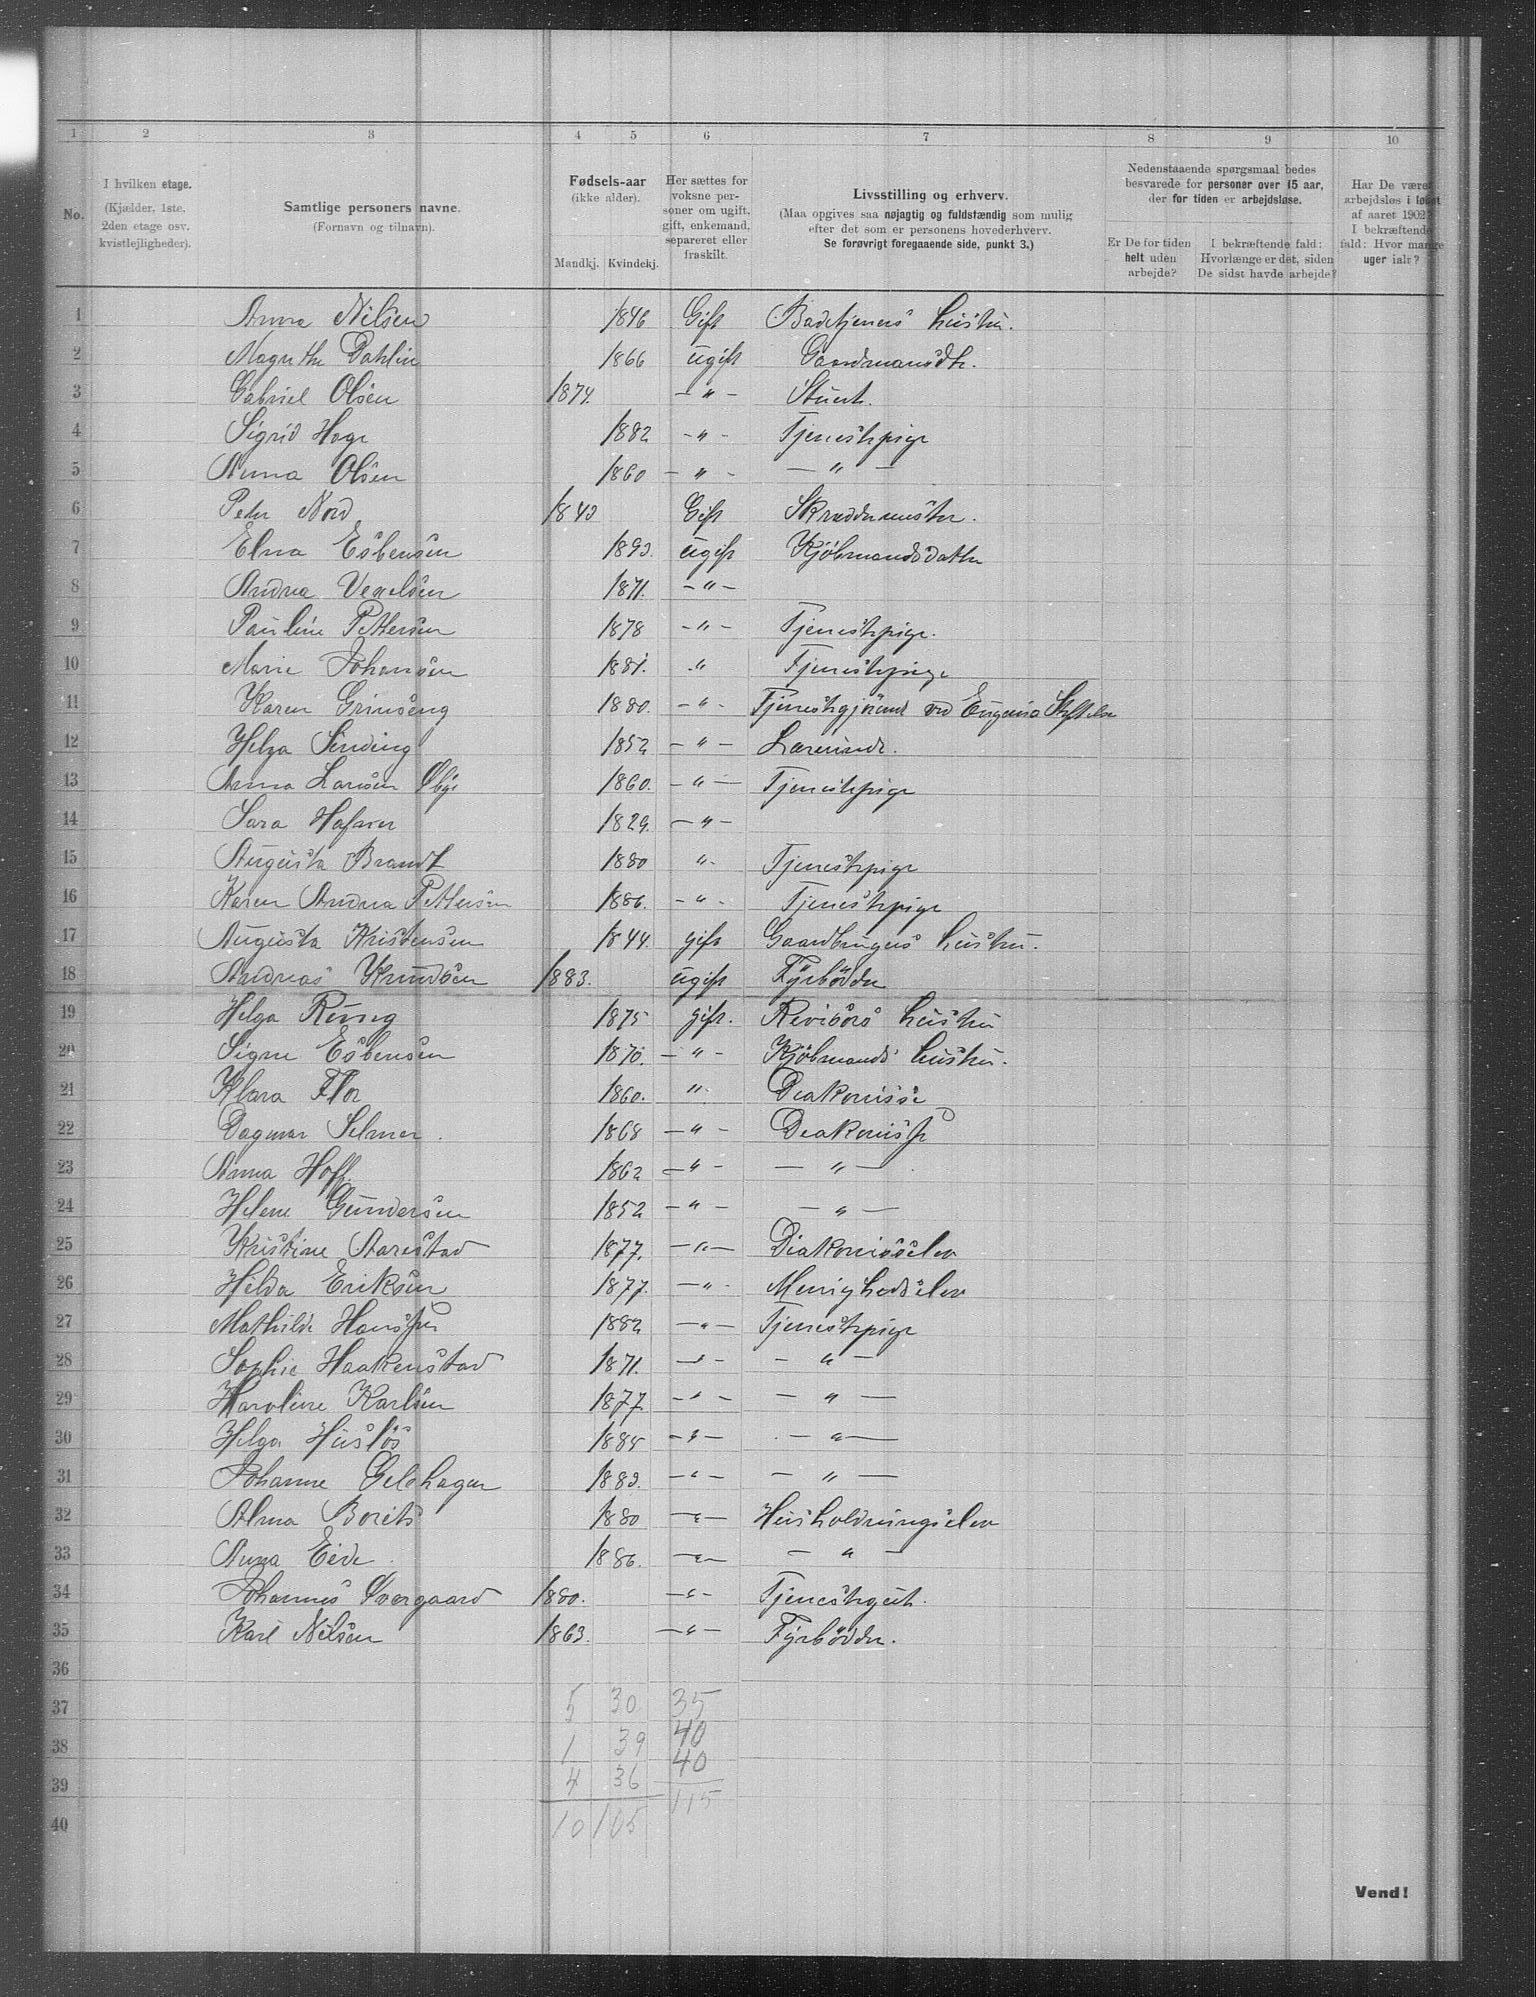 1 2 3 4 5 6 7 8 9 10
No.
I hvilken etage.
(Kjælder, 1ste.
2den etage osv.
kvistlejligheder).
Samtlige personers navne.
(Fornavn og tilnavn).
Fødsels-aar
(ikke alder).
Mandkj. Kvindekj.
Her sættes for
voksne per-
soner om ugift,
gift, enkemand,
separeret eller
fraskilt.
Livsstilling og erhverv.
(Maa opgives saa nøjagtig og fuldstændig som mulig
efter det som er personens hovederhverv.
Se forøvrigt foregaaende side, punkt 3.)
Nedenstaaende spørgsmaal bedes
besvarede for personer over 15 aar,
der for tiden er arbejdsløse.
Er De for tiden
helt uden
arbejde?
I bekræftende fald:
Hvorlænge er det, siden
De sidst havde arbejde?
Har De været
arbejdsløs i løbet
af aaret 1902?
I bekræftende
fald: Hvor mange
uger ialt?
1 Anna Nilsen 1846 Gift Badetjeners hustru.
2 Magrethe Dahlin 1866 ugift Gaardmandsdtr.
3 Gabriel Olsen 1874. — " — Stuert.
4 Sigrid Hoge 1882 - " - Tjenestepige
5 Anna Olsen 1860 — " - — " —
6 Peter Nord 1843 Gift Skræddermester.
7 Elna Esbensen 1893. ugift Kjöbmandsdatter
8 Andrea 1871. - " -
9 Pauline Pettersen 1878 - " - Tjenestepige.
10 Marie Johansen 1881. " Tjenestepige
11 Karen Grinseng 1880. - " - Tjenestegjörende ved Eugenia Stiftelse
12 Helga Sinding 1852 — " — Lærerinde.
13 Anna Larsen 1860. - " — Tjenestepige
14 Sara Hafner 1829. — " —
15 Augusta Brandt 1880 " Tjenestepige
16 Karen Andrea Pettersen 1886. - " - Tjenestepige
17 Augusta Kristensen 1844. gift Gaardbrugers hustru.
18 Andreas Knudsen 1883. ugift Fyrböder
19 Helga Ruug 1875 gift. Revisors hustru
20 Signe Esbensen 1870. — " - Kjöbmands hustru.
21 Klara Flor 1860. " Diakonisse
22 Dagmar Selmer. 1868 — " - Diakonisse
23 Anna Hoff. 1862 — " — — " —
24 Helene Gundersen 1852 — " — — " —
25 Kristine Aarestad 1877. — " — Diakonisselev
26 Hilda Eriksen 1877. — " - Menighedselev
27 Mathilde Hansen 1882 — " — Tjenestepige
28 Sophie Haakenstad 1871. — " — — " —
29 Karoline Karlsen 1877. — " — — " —
30 Helga Huslös 1885 — " — — " —
31 Johanne Gulehagen 1883. — " — — " —
32 Alma Borits 1880 — " — Husholdningselev
33 Anna Eide. 1886. — " — — " —
34 Johannes Overgaard 1880. — " — Tjenestegut.
35 Karl Nilsen 1863. — " — Fyrböder.
36
37 5 30 35
38 1 39 40
39 4 36 40
40 10 105 115
Vend!